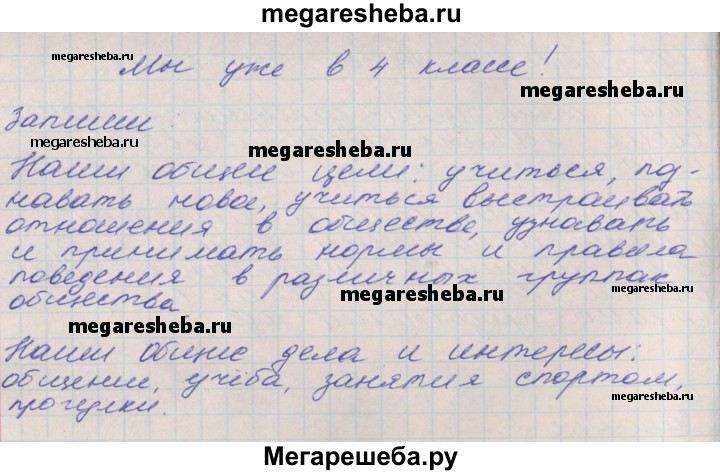 megaresheba.ru
megaresheba.ru
Мы уже в 4 классе!
megaresheba.ru
Запиши:
megaresheba.ru
megaresheba.ru
Наши общие цели: учиться, поз-
навать новое, учиться выстраивать
отношения в обществе, узнавать
и принимать нормы и правила
поведения в различных группах
megaresheba.ru
megaresheba.ru
общества.
megaresheba.ru
Наши общие дела и интересы:
общение, учёба, занятия спортом,
megaresheba.ru
прогулки.
Мегарешеба.ру